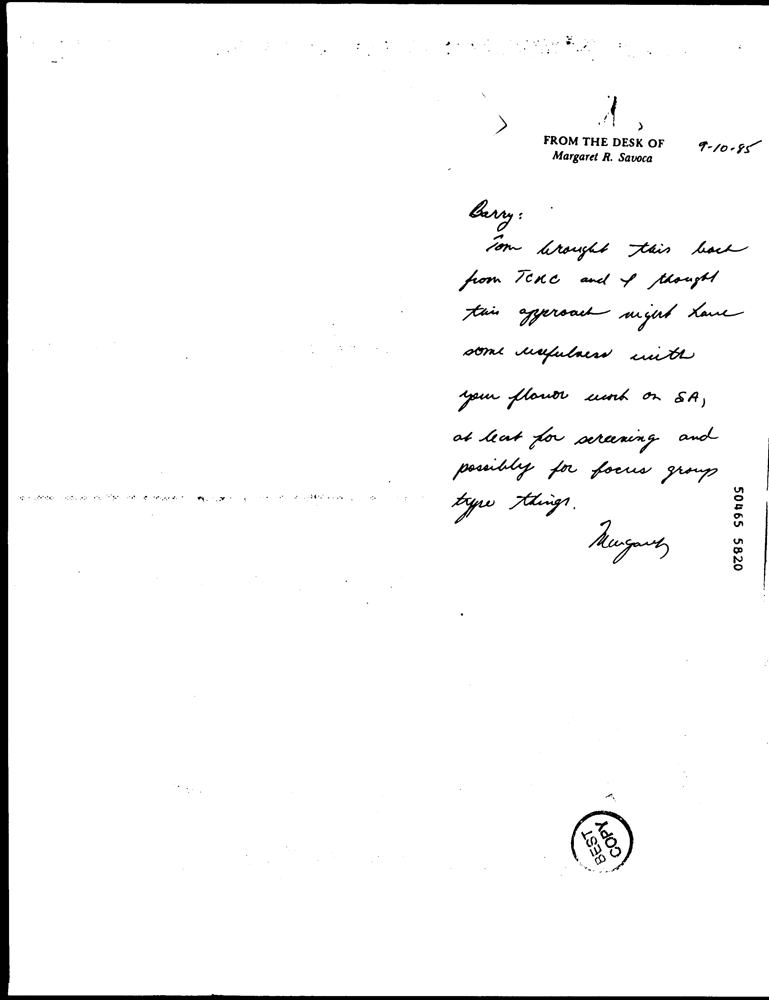 FROM THE DESK OF
Margaret R. Savoca
9-10-85
Barry:
Tom brought this back
from TCRC and I thought
this approach might have
some usefulness with
your flavor work on SA,
at least for screening and
possibly for focus group
type things.
Margaret
50465 5820
BEST
COPY